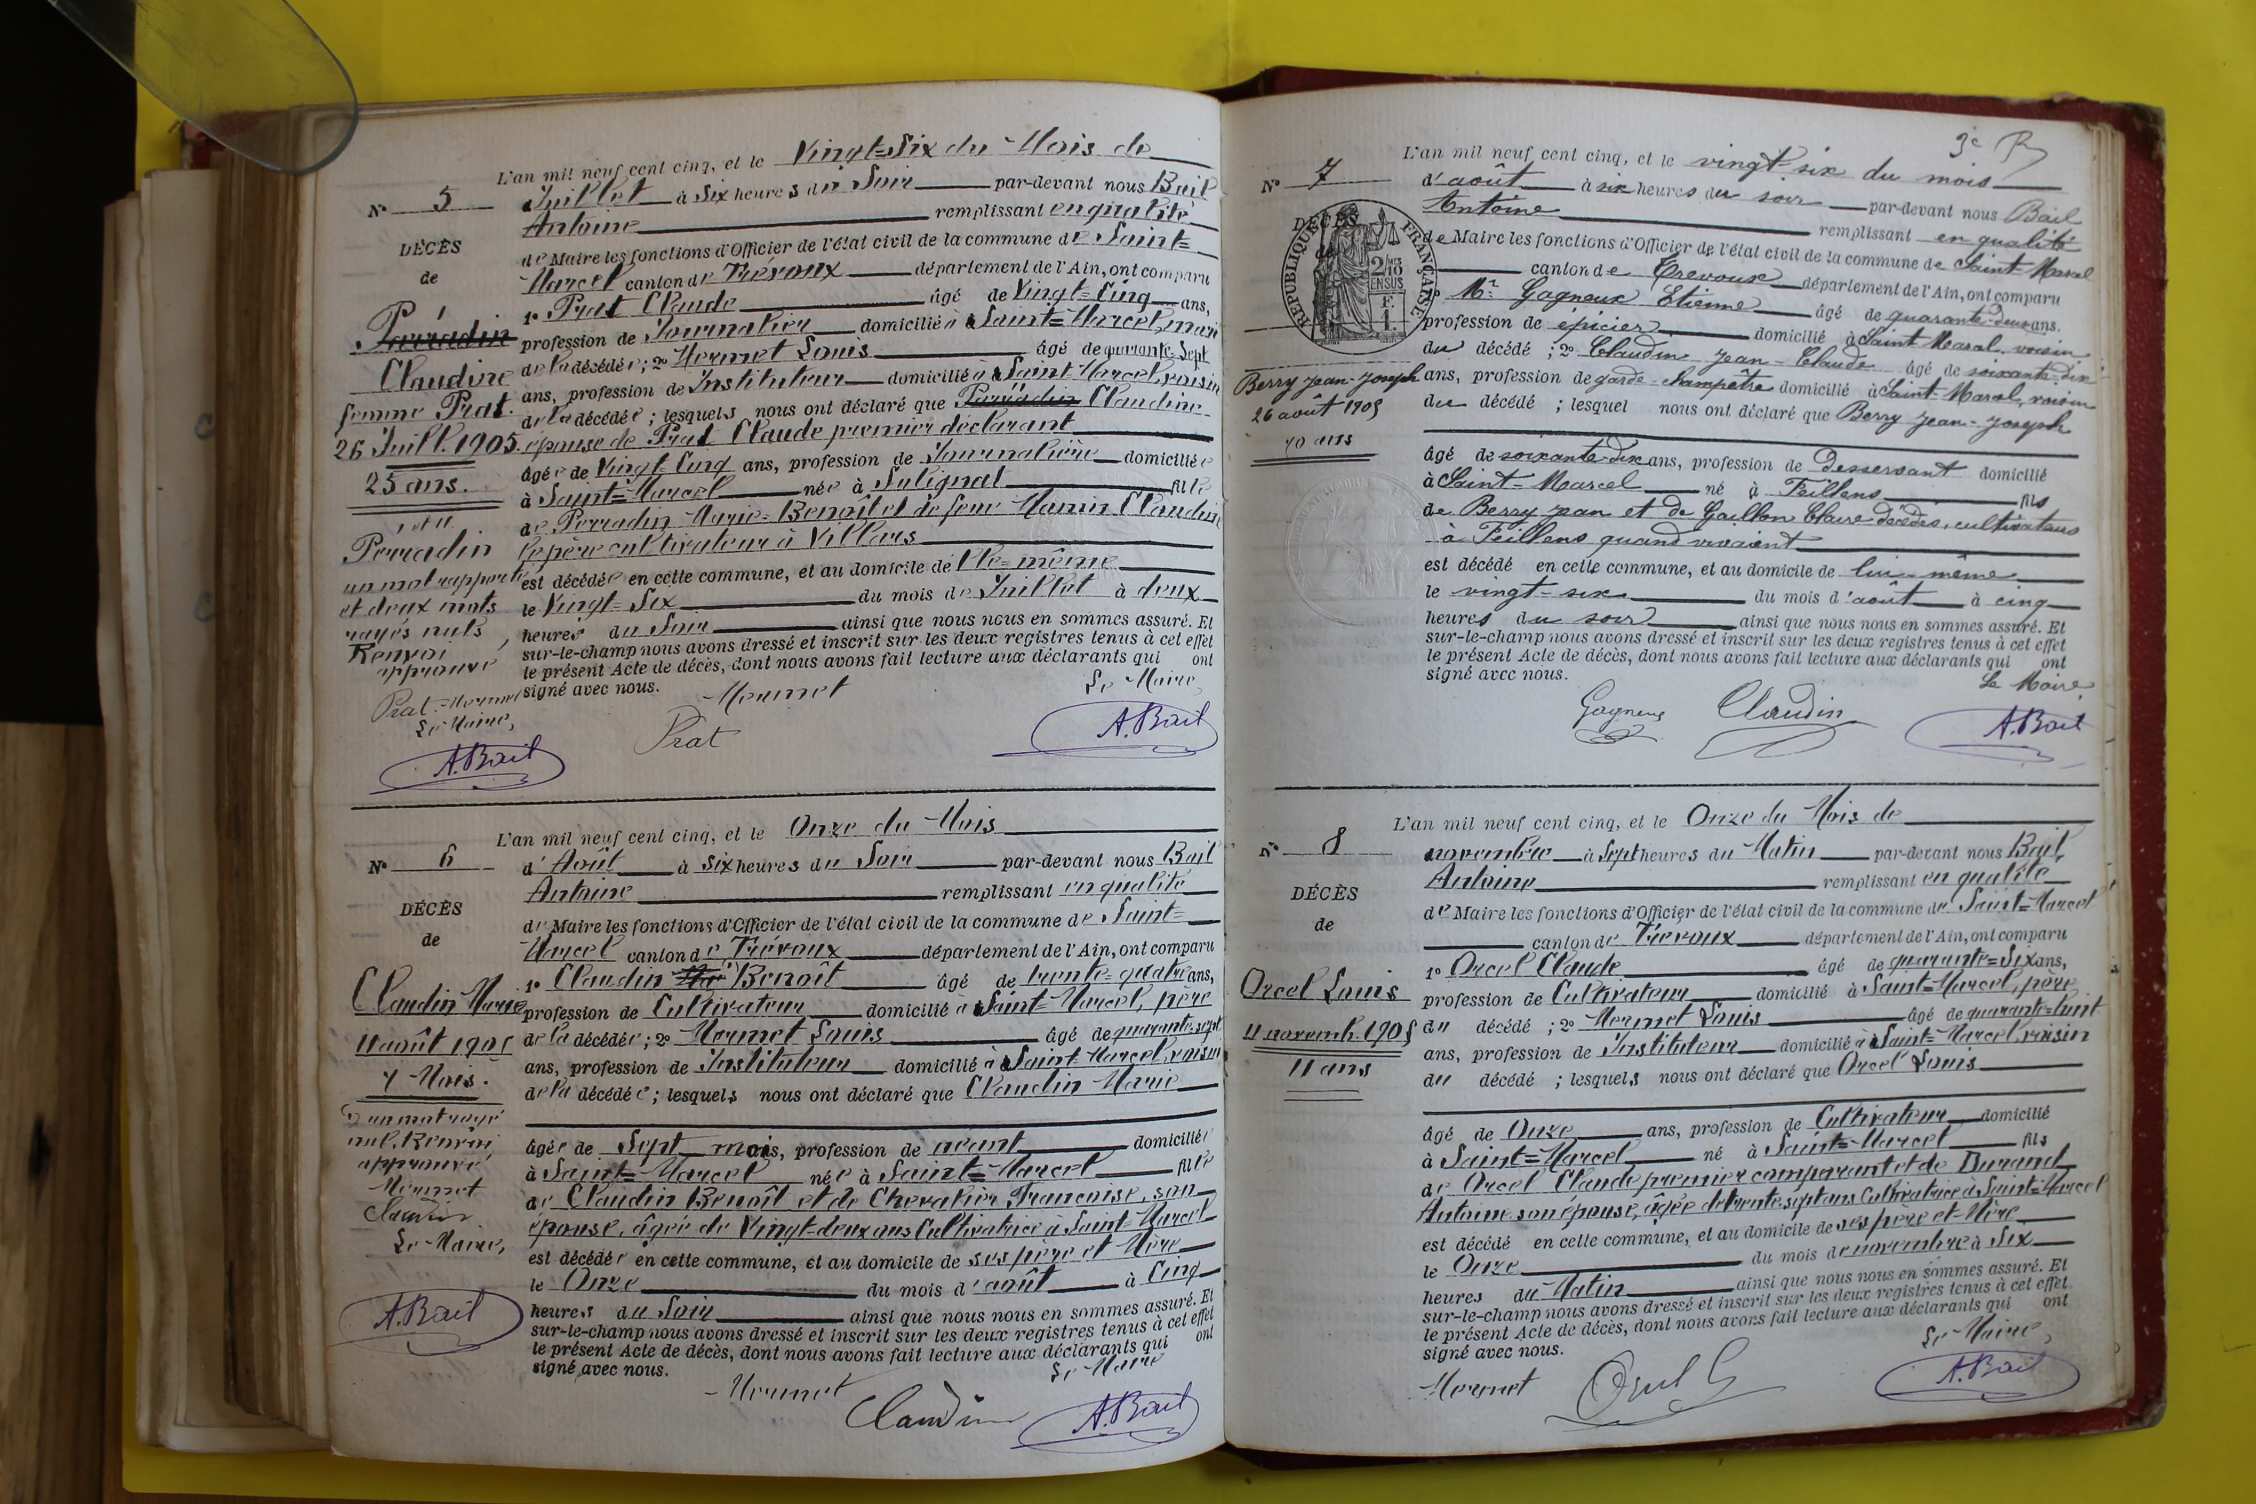 L'an mil neuf cent cinq, et le Vingt=Six du Mois de
N° 5
Juillet à Six heures du Soir par-devant nous Bail
Antoine remplissant en qualité
DÉCÈS
de Maire les fonctions d'Officier de l'état civil de la commune de Saint=
de
Marcel canton de Trévoux département de l'Ain, ont comparu
1° Prat Claude âgé de Vingt=Cinq ans,
Perradin
profession de Journalier domicilié à Saint=Marcel, mari
de la décédée ; 2° Mermet Louis âgé de quarante-Sept
Claudine
ans, profession de Instituteur domicilié à Saint-Marcel, voisin
femme Prat.
de la décédée ; lesquels nous ont déclaré que Claudine
26 Juill. 1905.
épouse de Prat Claude premier déclarant
25 ans.
âgée de Vingt-Cinq ans, profession de Journalière domiciliée
à Saint=Marcel née à Sulignat fille
de Perradin Marie=Benoît et de feue Mamin Claudine
Perradin
le père cultivateur à Villars
un mot rapporté
est décédée en cette commune, et au domicile de Elle-même
et deux mots
le Vingt=Six du mois de Juillet à deux
rayés nuls
heures du Soir ainsi que nous nous en sommes assuré. Et
Renvoi
sur-le-champ nous avons dressé et inscrit sur les deux registres tenus à cet effet
approuvé
le présent Acte de décès, dont nous avons fait lecture aux déclarants qui ont
signé avec nous.
Prat - Mermet
Le Maire,
A. Bail
Mermet
Prat
Le Maire,
A. Bail
L'an mil neuf cent cinq, et le Onze du Mois
N° 6
d'Août à six heures du Soir par-devant nous Bail
Antoine remplissant en qualité
DÉCÈS
de Maire les fonctions d'Officier de l'état civil de la commune de Saint=
de
Marcel canton de Trévoux département de l'Ain, ont comparu
1° Claudin Benoît âgé de trente=quatre ans,
Claudin Marie
profession de Cultivateur domicilié à Saint=Marcel, père
de la décédée ; 2° Mermet Louis âgé de quarante-sept
11 août 1905
ans, profession de Instituteur domicilié à Saint Marcel, voisin
7 Mois.
de la décédée ; lesquels nous ont déclaré que Claudin Marie
un mot rayé
nul. Renvoi
approuvé
Mermet
Claudin
Le Maire,
A. Bail
âgée de Sept mois, profession de néant domiciliée
à Saint=Marcel née à Saint=Marcel fille
de Claudin Benoît et de Chevalier Françoise, son
épouse, âgée de Vingt-deux ans Cultivatrice à Saint-Marcel
est décédée en cette commune, et au domicile de ses père et Mère
le Onze du mois d'août à Cinq
heures du Soir ainsi que nous nous en sommes assuré. Et
sur-le-champ nous avons dressé et inscrit sur les deux registres tenus à cet effet
le présent Acte de décès, dont nous avons fait lecture aux déclarants qui ont
signé avec nous.
Le Maire
Mermet
Claudin
A. Bail
3e
L'an mil neuf cent cinq, et le vingt-six du mois
N° 7
d'août à six heures du soir par-devant nous Bail
Antoine remplissant en qualité
DÉCÈS
de
RÉPUBLIQUE FRANÇAISE
2/10 EN SUS
1 F.
de Maire les fonctions d'Officier de l'état civil de la commune de Saint-Marcel
canton de Trevoux département de l'Ain, ont comparu
1° Mr Gagneux Etienne âgé de quarante-deux ans.
profession de épicier domicilié à Saint Marcel, voisin
du décédé ; 2° Claudin Jean-Claude âgé de soixante-dix
Berry Jean-Joseph
ans, profession de garde-champêtre domicilié à Saint-Marcel, voisin
26 août 1905
du décédé ; lesquel nous ont déclaré que Berry Jean-Joseph
70 ans
âgé de soixante-dix ans, profession de Desservant domicilié
à Saint-Marcel né à Feillens fils
de Berry Jean et de Gaillon Claire décédés, cultivateurs
à Feillens quand vivaient
est décédé en cette commune, et au domicile de lui-même
le vingt-six du mois d'août à cinq
heures du soir ainsi que nous nous en sommes assuré. Et
sur-le-champ nous avons dressé et inscrit sur les deux registres tenus à cet effet
le présent Acte de décès, dont nous avons fait lecture aux déclarants qui ont
signé avec nous.
Le Maire,
Gagneux
Claudin
A. Bail
L'an mil neuf cent cinq, et le Onze du Mois de
N° 8
novembre à Sept heures du Matin par-devant nous Bail,
Antoine remplissant en qualité
DÉCÈS
de Maire les fonctions d'Officier de l'état civil de la commune de Saint=Marcel
de
canton de Trévoux département de l'Ain, ont comparu
1° Orcel Claude âgé de quarante=Six ans,
Orcel Louis
profession de Cultivateur domicilié à Saint=Marcel, père
11 novemb. 1905
du décédé ; 2° Mermet Louis âgé de quarante-huit
ans, profession de Instituteur domicilié à Saint=Marcel, voisin
11 ans
du décédé ; lesquels nous ont déclaré que Orcel Louis
âgé de Onze ans, profession de Cultivateur domicilié
à Saint=Marcel né à Saint=Marcel fils
de Orcel Claude premier comparant et de Durand
Antoine son épouse, âgée de trente-sept ans Cultivatrice à Saint=Marcel
est décédé en cette commune, et au domicile de ses père et Mère
le Onze du mois de novembre à Six
heures du Matin ainsi que nous nous en sommes assuré. Et
sur-le-champ nous avons dressé et inscrit sur les deux registres tenus à cet effet
le présent Acte de décès, dont nous avons fait lecture aux déclarants qui ont
signé avec nous.
Le Maire,
Mermet
A. Bail